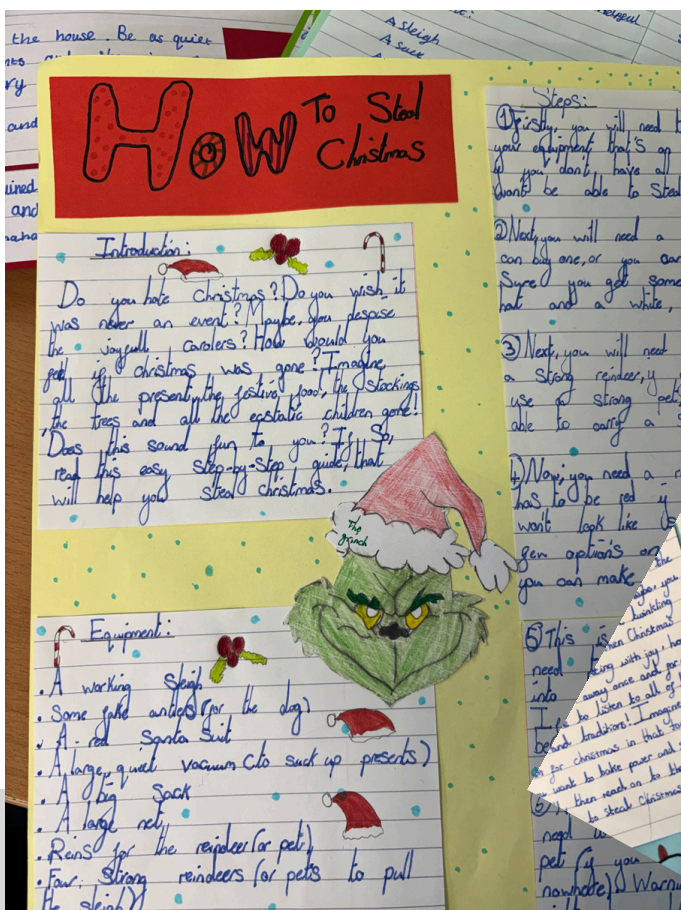 the house. Be as quiet
and
ained
and
A sleigh
A sack
How To Steal
Christmas
Introduction:
Do you hate christmas? Do you wish it
was never an event? Maybe, you despise
the joyfull carolers? How would you
feel if christmas, was gone? Imagine
all the present, the festive food, the stockings
, the trees and all the ecstatic children gone!
Does this sound fun to you? If So,
read this easy step-by-step guide, that
will help you steal christmas.
The
grinch
Equipment:
. A working sleigh
. Some fake antlers (for the dog)
. A red Santa Suit
. A large, quiet vacuum (to suck up presents)
. A big Sack
. A large net
. Reins for the reindeer (or pet)
. Four strong reindeers (or pets to pull
the sleigh)
Steps:
① Firstly, you will need
your equipment that's on
you don't have all
wont be able to Steal
② Next, you will need a
can buy one, or you can
Sure you get some
hat and a white,
③ Next, you will need
a strong reindeer,
use a strong pet
able to carry a
4 Now, you need a
has to be red
wont look like
options on
you can make
5 This is
need
into
need
pet (if you
nowhere)
the
you
twinkling
when Christmas
with joy,
away once and for
to listen to all of
and traditions! Imagine
for christmas in that
want to take power and
then read on to the
to steal Christmas